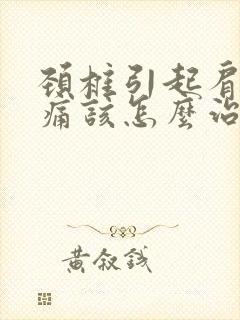 頚椎引起肩
痛該怎麼治
黃叙錢